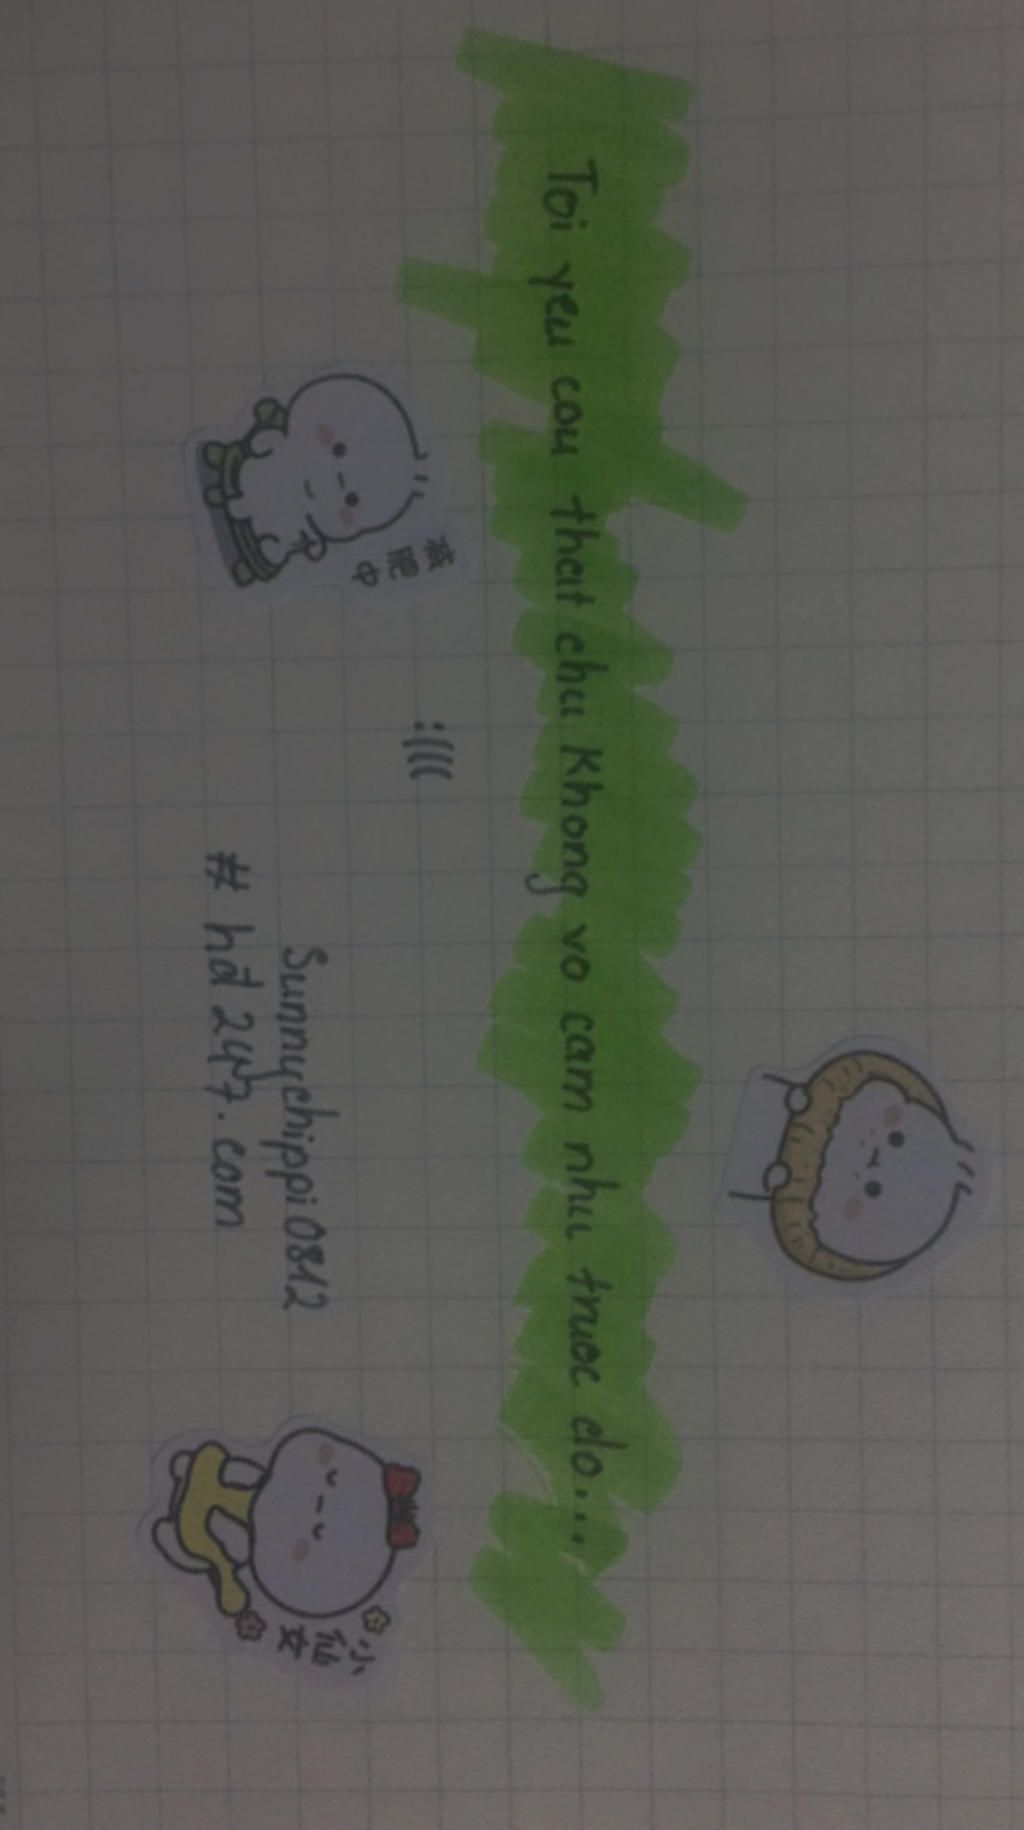 Toi yeu cau that chu Khong vo cam nhu truoc do...
:((((
减
肥
中
Sunnychippi0812
# hd247.com
小
仙
女